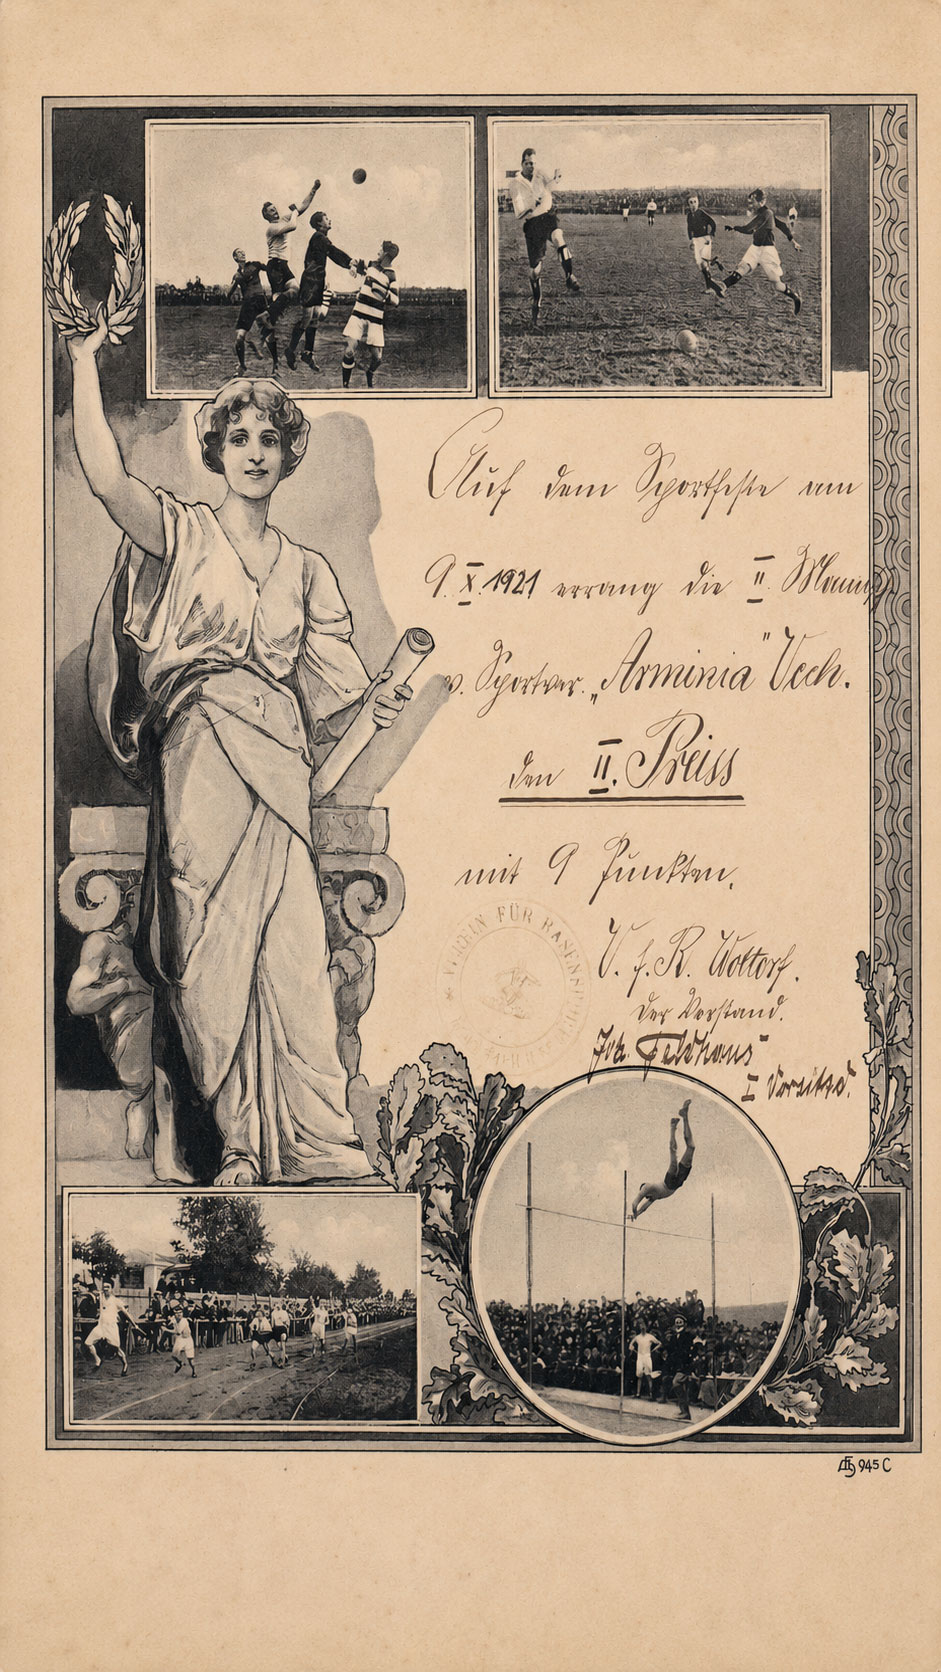 Auf dem Sportfeste am
9. X. 1921 errang die II. Mannsch.
v. Sportver. „Arminia" Vech.
den II. Preiss
mit 9 Punkten.
VEREIN FÜR RASENSPORT
V. f. R. Woltorf.
Der Vorstand.
Joh. Feldhaus
I Vorsitzd.
945 C